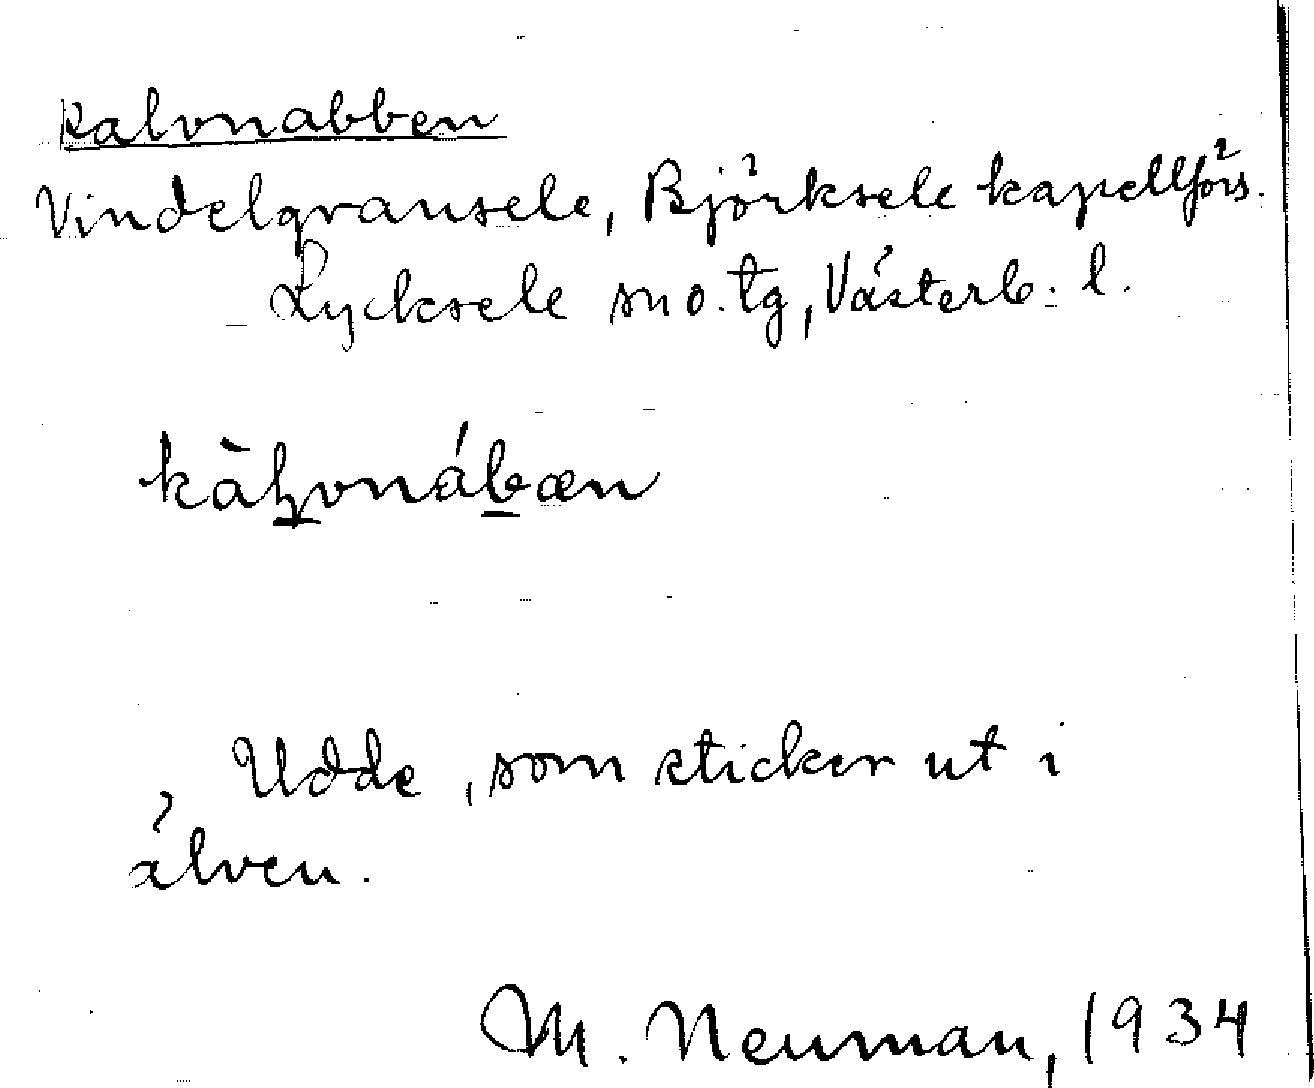 Kalvnabben
Vindelgransele, Björksele kapellförs.
Lycksele sn o. tg, Västerb. l.
kàḻvnáḇæn
Udde, som sticker ut i
älven.
M. Neuman, 1934